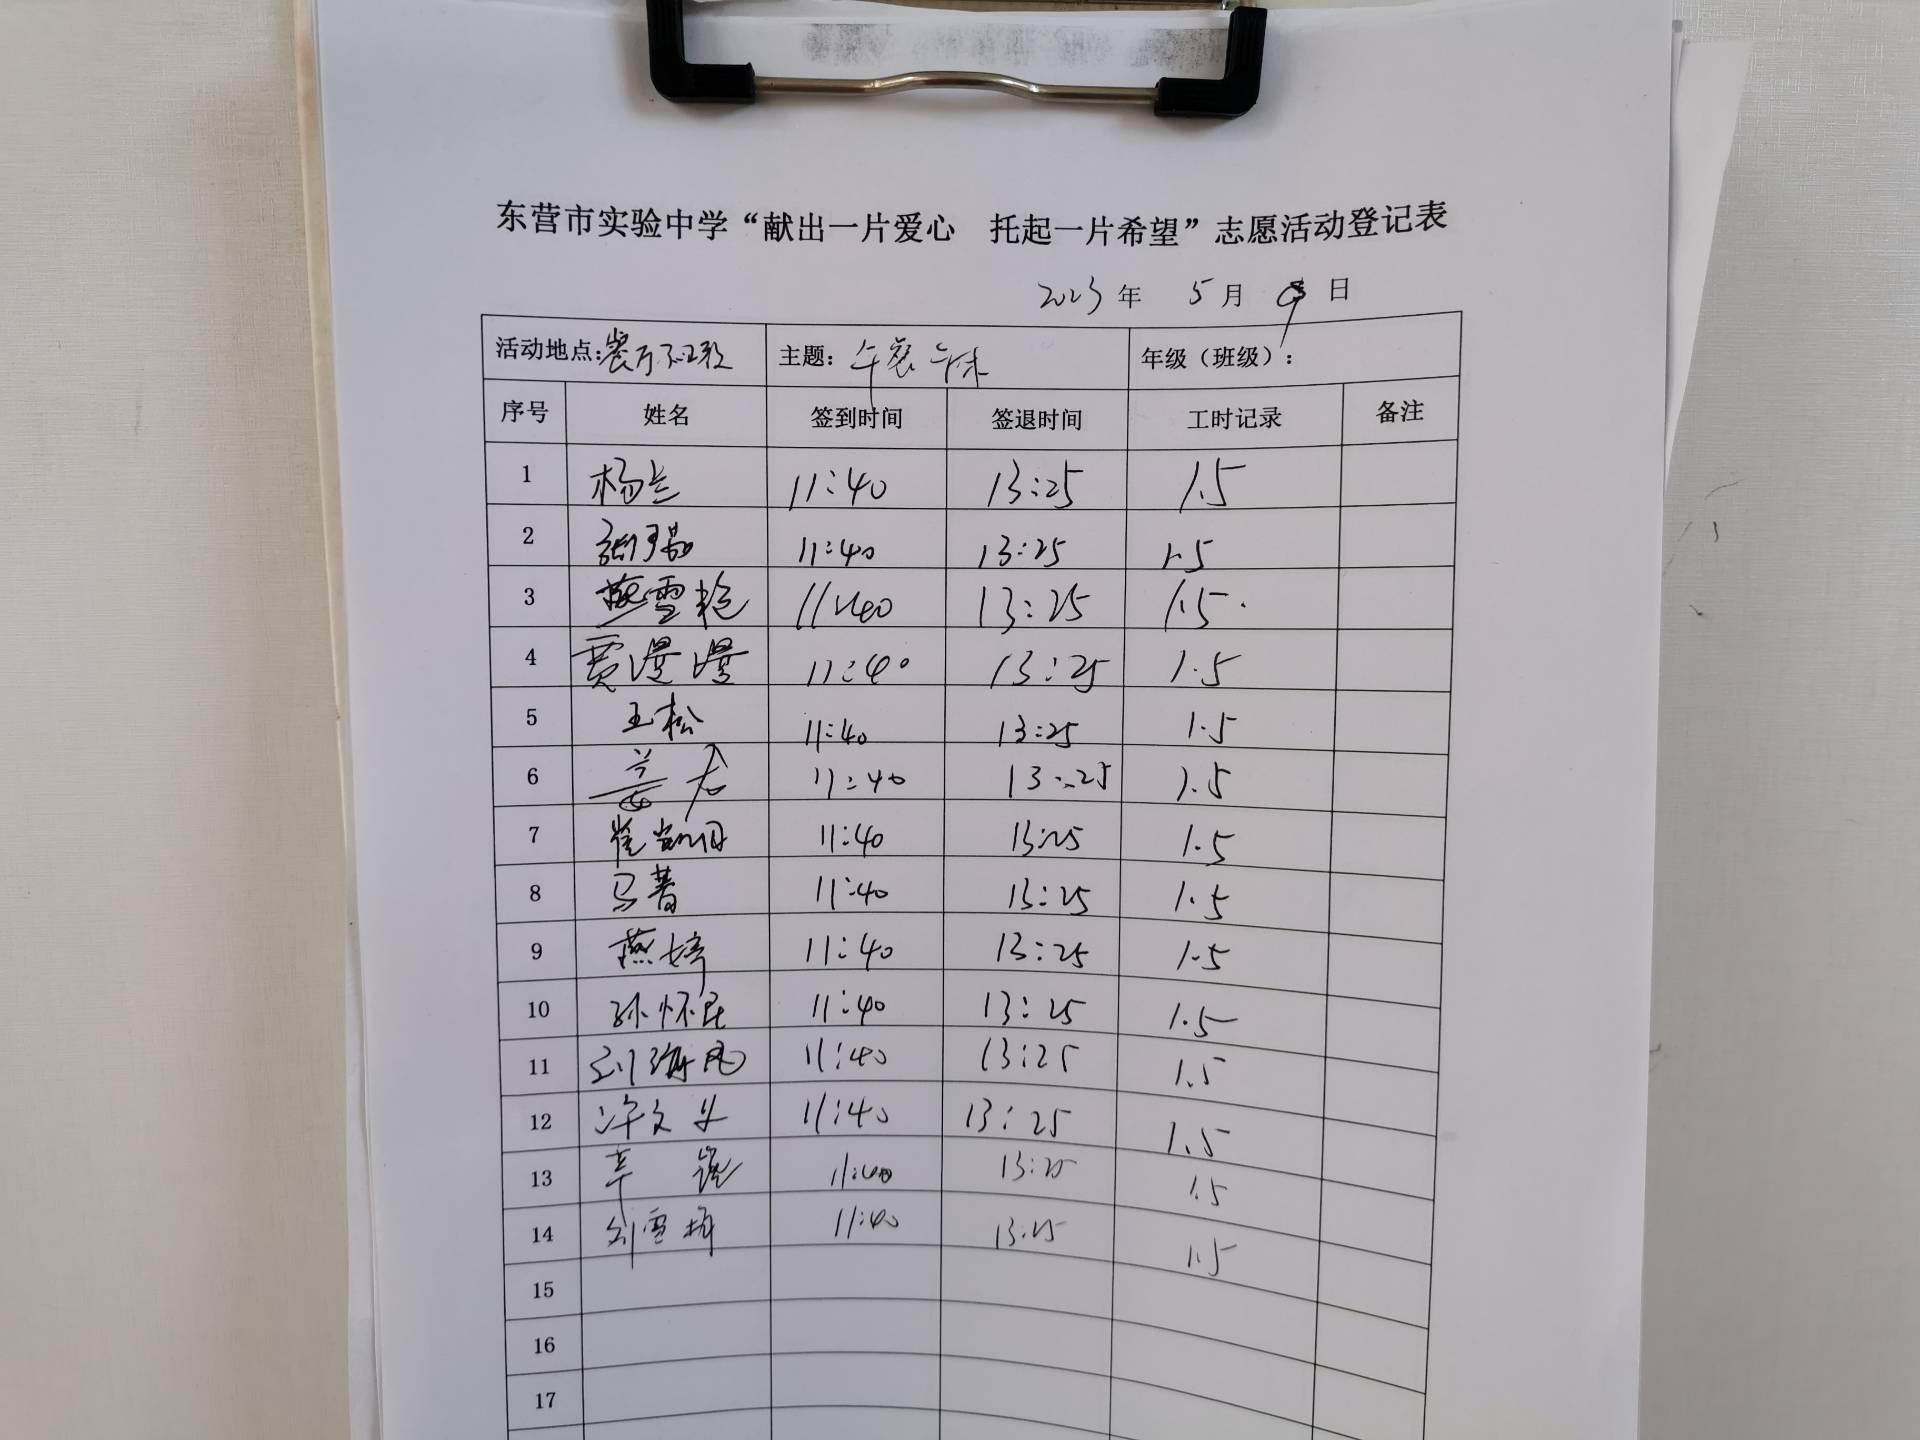 东营市实验中学“献出一片爱心 托起一片希望”志愿活动登记表
2023 年 5 月 9 日
活动地点:餐厅 主题: 午餐午休 年级（班级）:
序号 姓名 签到时间 签退时间 工时记录 备注
1 杨兰 11:40 13:25 1.5
2 11:40 13:25 1.5
3 雪艳 11:40 13:25 1.5
4 贾漫漫 11:40 13:25 1.5
5 王松 11:40 13:25 1.5
6 姜 11:40 13:25 1.5
7 崔凯 11:40 13:25 1.5
8 马普 11:40 13:25 1.5
9 燕婷 11:40 13:25 1.5
10 孙怀民 11:40 13:25 1.5
11 刘海凤 11:40 13:25 1.5
12 许文 11:40 13:25 1.5
13 11:40 13:25 1.5
14 刘雪梅 11:40 13:25 1.5
15
16
17